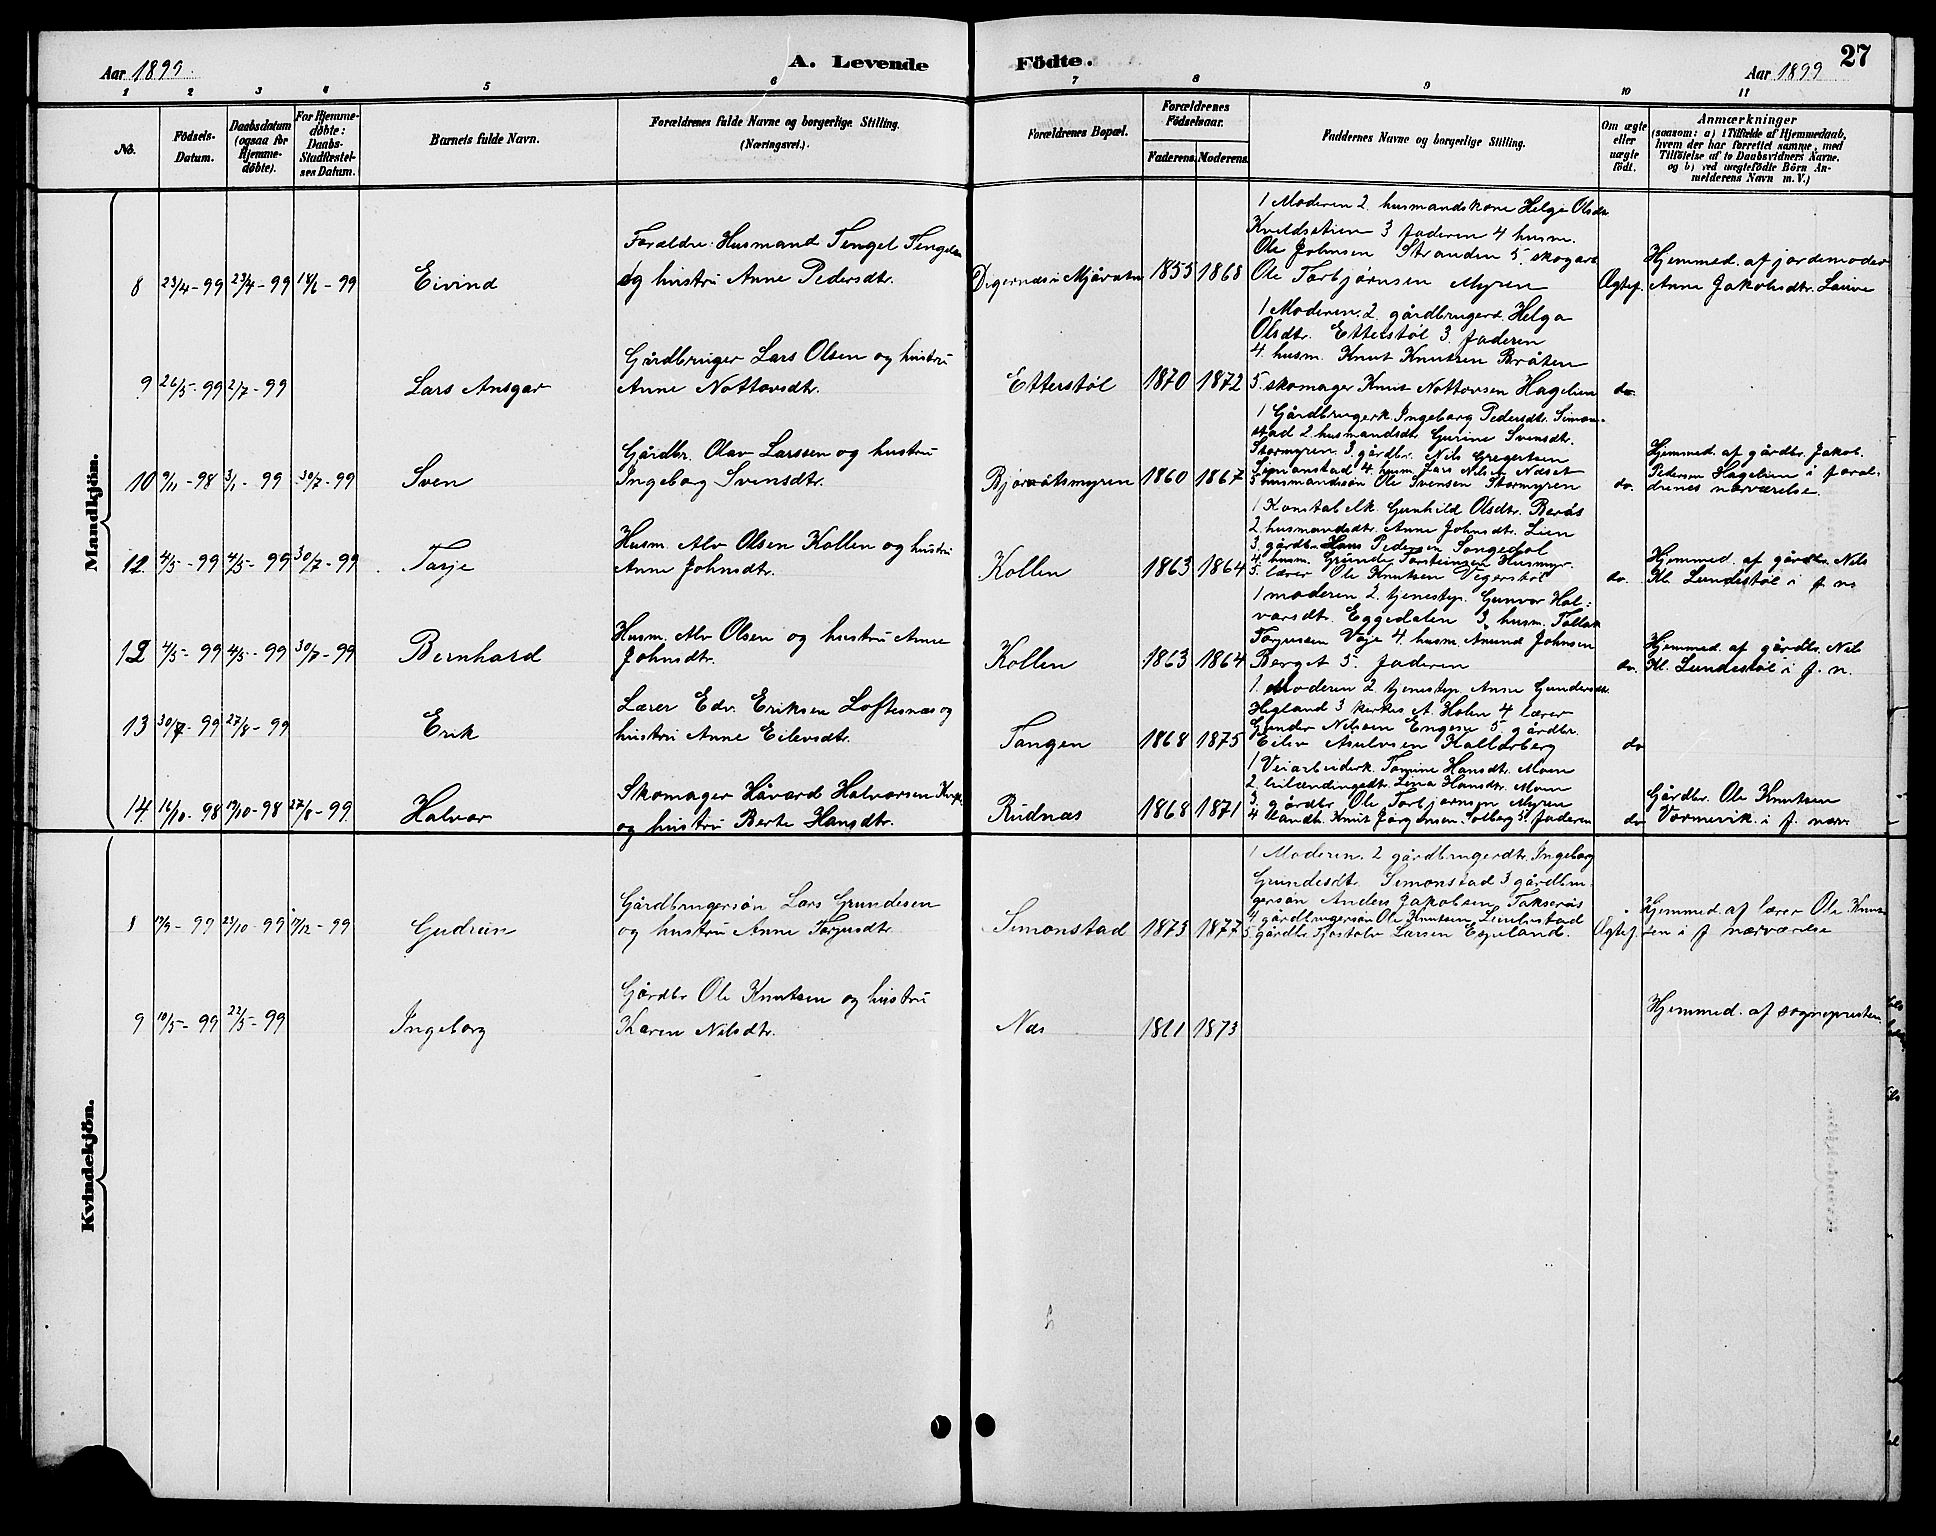 Aar 1899.
A. Levende
Födte.
Aar 1899
27
1 2 3 4 5 6 7 8 9 10 11
No.
Födsels-
Datum.
Daabsdatum
(ogsaa for
Hjemme-
döbte).
For Hjemme-
döbte:
Daabs-
Stadfæstel-
ses Datum.
Barnets fulde Navn.
Forældrenes fulde Navne og borgerlige Stilling.
(Næringsvei.)
Forældrenes Bopæl.
Forældrenes
Födselsaar.
Faderens. Moderens.
Faddernes Navne og borgerlige Stilling.
Om ægte
eller
uægte
födt.
Anmærkninger
(saasom: a) i Tilfælde af Hjemmedaab,
hvem der har forrettet samme, med
Tilföielse af to Daabsvidners Navne,
og b) ved uægtefödte Börn An-
melderens Navn m. V.)
Mandkjön.
8 23/4-99 23/4-99 18/6-99 Eivind
Forældre: Husmand Tengel
og hustru Anne Pedersdtr.
Digernæs i Mjåvatn 1855 1868
1 Moderen 2. husmandskone Helge Olsdr.
3 faderen 4 husm.
Ole Johnsen Stranden 5. skogarb
Ole Torbjørnsen Myren
Ægtef.
Hjemmed. af jordemoder
Anne Jakobsdtr. Lauve
9 26/5-99 2/7-99 Lars Ansgar
Gårdbruger Lars Olsen og hustru
Anne Nottovsdtr.
Etterstøl 1870 1872
1 Moderen. 2. gårdbrugerd. Helga
Olsdtr. Etterstøl 3. faderen
4. husm. Knut Knutsen Bråten
5. skomager Knut Nottovsen Hagelien
do.
10 9/11-98 3/1-99 30/7-99 Sven
Gårdbr. Olav Larssen og hustru
Ingebog Svensdtr.
Bjørvåtsmyren 1860 1867
1 Gårdbrugerk. Ingeborg Pedersdtr. Simon-
stad 2. husmandsdtr. Gurine Svensdtr.
Stormyren. 3. gårdbr. Nils Gregertsen
Simonstad 4. husm. Lars Nilsen Næset
5 husmandssön Ole Svensen Stormyren
do.
Hjemmed. af gårdbr. Jakob
Pedersen Hagelien i foræl-
drenes nærværelse.
12 4/5-99 4/5-99 30/7-99 Tarje
Husm. Alv Olsen Kollen og hustru
Anne Johnsdtr.
Kollen 1863 1864
1 Konstabelk. Gunhild Olsdtr. Berås
2. husmandsdtr. Anne Johnsdtr. Lien
3. gårdbr. Hans Pedersen Songedal
4. husm. Grunde Torsteinsen Husmyr
5. lærer Ole Knutsen Vegerstøl
do.
Hjemmed. af gårdbr. Nils
Kl. Lundestøl i f. n.
12 4/5-99 4/5-99 30/7-99 Bernhard
Husm. Alv Olsen og hustru Anne
Johnsdtr.
Kollen 1863 1864
1 moderen 2. tjenestep. Gunvor Hal-
vorsdt. Eggedalen 3. husm. Tollak
Torjussen Veje 4 husm. Anund Johnsen
Berget 5. faderen
do.
Hjemmed. af gårdbr. Nils
Kl. Lundestöl i f. n.
13 30/7-99 27/8-99 Erik
Lærer Edv. Eriksen Loftesnæs og
hustru Anne Eilevsdtr.
Tangen 1868 1875
1. Moderen 2 tjenestep. Anne Gundersdt.
Higland 3 kirkes. A. Holen 4 lærer
Gunder Nilsen Engene 5. gårdbr.
Eiliv Asulvsen
do
14 16/10-98 19/10-98 27/8-99 Halvor
Skomager Håvard Halvorsen
og hustru Berte Hansdtr.
Rudnæs 1868 1871
1 Veiarbeiderk. Tomine Hansdtr. Moen
2. leilændingsdt. Lina Hansdtr. Moen
3. gårdbr. Ole Torbjørnsen Myren
4 landh. Knut Jørgensen Solberg 5. faderen
do
Gårdbr. Ole Knutsen
Vormevik i f. nærv.
Kvindekjön.
8 19/9-99 23/10-99 17/12-99 Gudrun
Gårdbrugersön Lars Grundesen
og hustru Anne Torjusdtr.
Simonstad 1873 1877
1 Moderen. 2 gårdbrugerdtr. Ingeborg
Grundesdt. Simonstad 3 gårdbru-
gersön Anders Jakobsen Takserås
4 gårdbrugersön Ole Knutsen
5. gårdbr. Tjøstolv Larsen Espeland.
Ægtef.
Hjemmed. af lærer Ole Knut-
sen i f nærværelse
9 10/5-99 22/5-99 Ingeborg
Gårdbr Ole Knutsen og hustru
Karen Nilsdtr.
Næs 1873
Hjemmed. af sognepresten